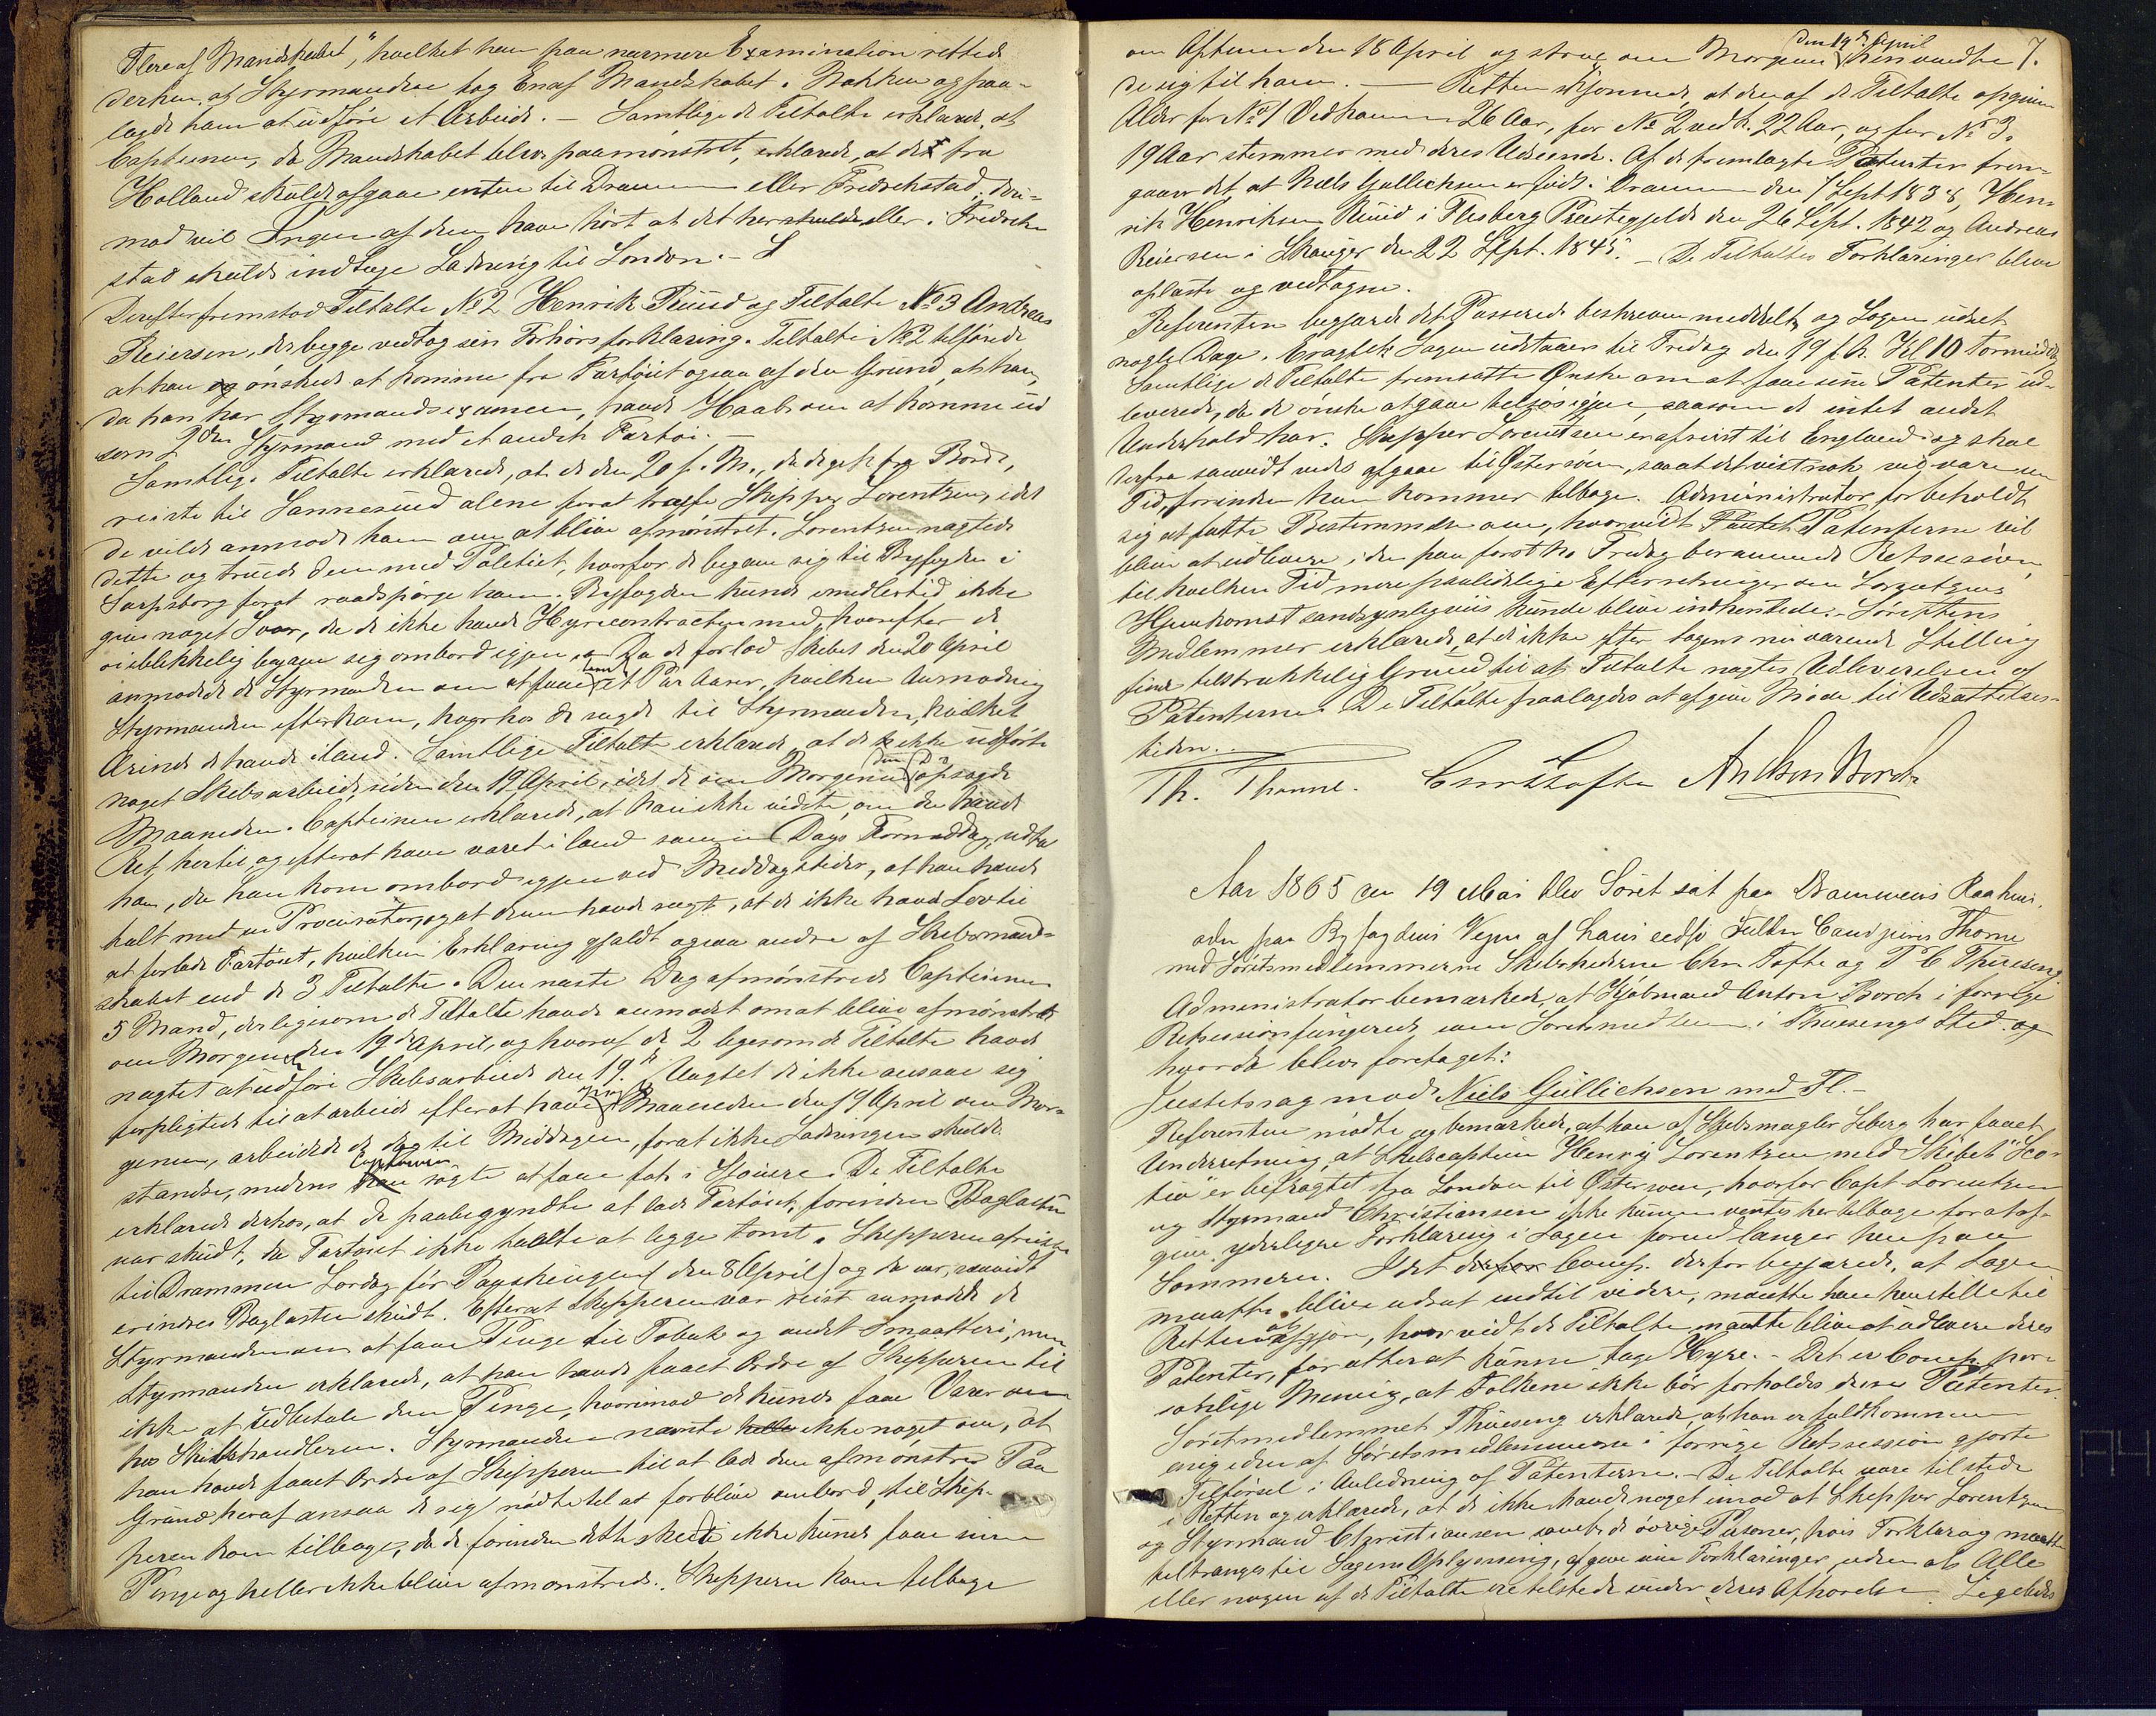 Flere af Mandskabet", hvilket han paa nærmere Examination rettede
derhen, at Styrmanden tog En af Mandskabet i Nakken og paa-
lagde ham at udføre et Arbeide. — Samtlige de Tiltalte erklærede, at
Capteinen, da Mandskabet blev paamønstret, erklærede, at det fra
Holland skulde afgaae enten til Drammen eller Fredrikstad; der-
mod vil Ingen af dem have hørt at det her skulde eller i Fredrik-
stad skulde indtage Ladning til London. —
Derefter fremstod Tiltalte No 2 Henrik Ruud og Tiltalte No 3 Andreas
Reiersen, der begge vedtog sin Forhørsforklaring. Tiltalte No 2 tilføiede
at han og ønskede at komme fra Fartøiet ogsaa af den Grund, at han,
da han har Styrmandsexamen, havde Haab om at komme ud
som 2den Styrmand med et andet Fartøi. —
Samtlige Tiltalte erklærede, at de den 20 f. M., da de gik fra Borde,
reiste til Sannesund alene forat træffe Skipper Lorentzen, idet
de vilde anmode ham om at blive afmønstret. Lorentzen nægtede
dette og truede dem med Politiet, hvorfor de begave sig til Byfogden i
Sarpsborg forat raadspørge ham. Byfogden kunde imidlertid ikke
give noget Svar, da de ikke havde Hyrecontracten med, hvorefter de
øieblikkelig begave sig ombord igjen. Da de forlod Skibet den 20 April
anmodede de Styrmanden om at faae laant et Par Aarer, hvilken Anmodning
Styrmanden efterkom, hvorhos de sagde til Styrmanden, hvilket
Ærinde de havde iland. Samtlige Tiltalte erklærede, at de ikke udførte
noget Skibsarbeide siden den 19 April, idet de om Morgenen den Dn opsagde
Maaneden. Capteinen erklærede, at han ikke vidste, om de havde
Ret hertil, og efterat have været i land samme Dags Formiddag, udtalte
han, da han kom ombord igjen ved Middagstider, at han havde
talt med en Procurator, og at denne havde sagt, at de ikke havde Lov til
at forlade Fartøiet, hvilken Erklæring gjaldt ogsaa andre af Skibsmand-
skabet end de 3 Tiltalte. Den næste Dag afmønstrede Capteinen
5 Mand, der ligesom de Tiltalte havde anmodet om at blive afmønstret
om Morgenen den 19de April, og hvoraf de 2 ligesom de Tiltalte havde
nægtet at udføre Skibsarbeide den 19de. Uagtet de ikke ansaae sig
forpligtede til at arbeide efterat have opsagt Maaneden den 19 April om Mor-
genen, arbeidede de dog til Middagen, forat ikke Ladningen skulde
standse, medens Capteinen søgte at faae fat i Sjouere. De Tiltalte
erklærede derhos, at de paabegyndte at lade Fartøiet, forinden Baglasten
var skudt, da Fartøiet ikke taalte at ligge tomt. Skipperen afreiste
til Drammen Lørdag før Paaskeugen (den 8 April) og da var, saavidt
erindres Baglasten skudt. Efterat Skipperen var reist anmodede de
Styrmanden om at faae Penge til Tobak og andet Smaatteri, men
Styrmanden erklærede, at han havde faaet Ordre af Skipperen til
ikke at udbetale dem Penge, hvorimod de kunde faae Varer om
hos Skibshandleren. Styrmanden nævnte ikke noget om, at
han havde faaet Ordre af Skipperen til at lade dem afmønstre. Paa
Grund heraf ansaa de sig nødte til at forblive ombord, til Skip-
peren kom tilbage, da de forinden dette skede ikke kunde faae sine
Penge og heller ikke blive afmønstrede. Skipperen kom tilbage
7.
om Aftenen den 18 April og strax om Morgenen den 19de April henvendte
de sig til ham. — Retten skjønnede, at den af de Tiltalte opgivne
Alder for No 1 Vedkommende 26 Aar, for No 2 ved k. 22 Aar, og for No 3.
19 Aar stemmer med deres Udseende. Af de fremlagte Patenter frem-
gaaer det at Niels Gullichsen er født i Drammen den 7 Sept 1838, Hen-
rik Henriksen Ruud i Flesberg Præstegjeld den 26 Sept. 1842 og Andreas
Reiersen i Skauger den 22 Sept. 1845. — De Tiltaltes Forklaringer bleve
oplæste og vedtagne.
Referenten begjærede det Passerede beskreven meddelt, og Sagen udsat
nogle Dage. Eragtet: Sagen udstaaer til Fredag den 19 f. k. Kl 10 Formiddag
Samtlige de Tiltalte fremsatte Ønske om at faae sine Patenter ud-
leverede, da de ønske at gaae tilsøs igjen, saasom de intet andet
Underhold har. Skipper Lorentsen er afreist til England og skal
derfra saavidt vides afgaae til Østersøen, saa at det vistnok vil vare en
Tid, forinden han kommer tilbage. Administrator forbeholdt
sig at fatte Bestemmelse om, hvorvidt Patenterne vil
blive at udlevere i den paa førstk. Fredag berammede Retssession,
til hvilken Tid mere paalidelige Efterretninger om Lorentzens
Hjemkomst sandsynligviis kunde blive indhentede. — Sørettens
Medlemmer erklærede, at de ikke efter Sagens nuværende Stilling
finde tilstrækkelig Grund til at Tiltalte nægtes Udleverelsen af
Patenterne. De Tiltalte paalagdes at afgive Møde til Udsættelses-
tiden.
Th. Thorne. Chr Tofte Anthon Borch
Aar 1865 den 19 Mai blev Søret sat paa Drammens Raadhus,
adm paa Byfogdens Vegne af hans edsv Fuldm Cand juris Thorne
med Søretsmedlemmerne Skibsrhederne Chr Tofte og T C Thuesen;
Administrator bemærkede, at Kjøbmand Anton Borch i forrige
Retssession fungerede som Søretsmedlem i Thuesens Sted og
hvorda blev foretaget:
Justitssag mod Niels Gullichsen med Fl. —
Referenten mødte og bemærkede, at han af Skibsmægler Seberg har faaet
Underretning, at Skibscaptein Henrij Lorentzen med Skibet "Sco-
tia" er befragtet fra London til Østersøen, hvorfor Capt Lorentzen
og Styrmand Christiansen ikke kunne ventes her tilbage forat af-
give yderligere Forklaring i Sagen førend længer hen paa
Sommeren. Idet Comp. derfor begjærede, at Sagen
maatte blive udsat indtil videre, maatte han henstille til
Retten at afgjøre, hvorvidt de Tiltalte maatte blive at udlevere deres
Patenter, for atter at kunne tage Hyre. — Det er Comp. per-
sonlige Mening, at Folkene ikke bør forholdes disse Patenter.
Søretmedlemmet Thuesen erklærede, at han er fuldkommen
enig i den af Søretsmedlemmerne i forrige Retssession gjorte
Tilførsel i Anledning af Patenterne. — De Tiltalte vare tilstede
i Retten og erklærede, at de ikke havde noget imod at Skipper Lorentzen
og Styrmand Christiansen samt de øvrige Personer, hvis Forklaring maatte
tiltrænges til Sagens Oplysning, afgave sine Forklaringer, uden at Alle
eller nogen af de Tiltalte ere tilstede under deres Afhørelse. Ligeledes